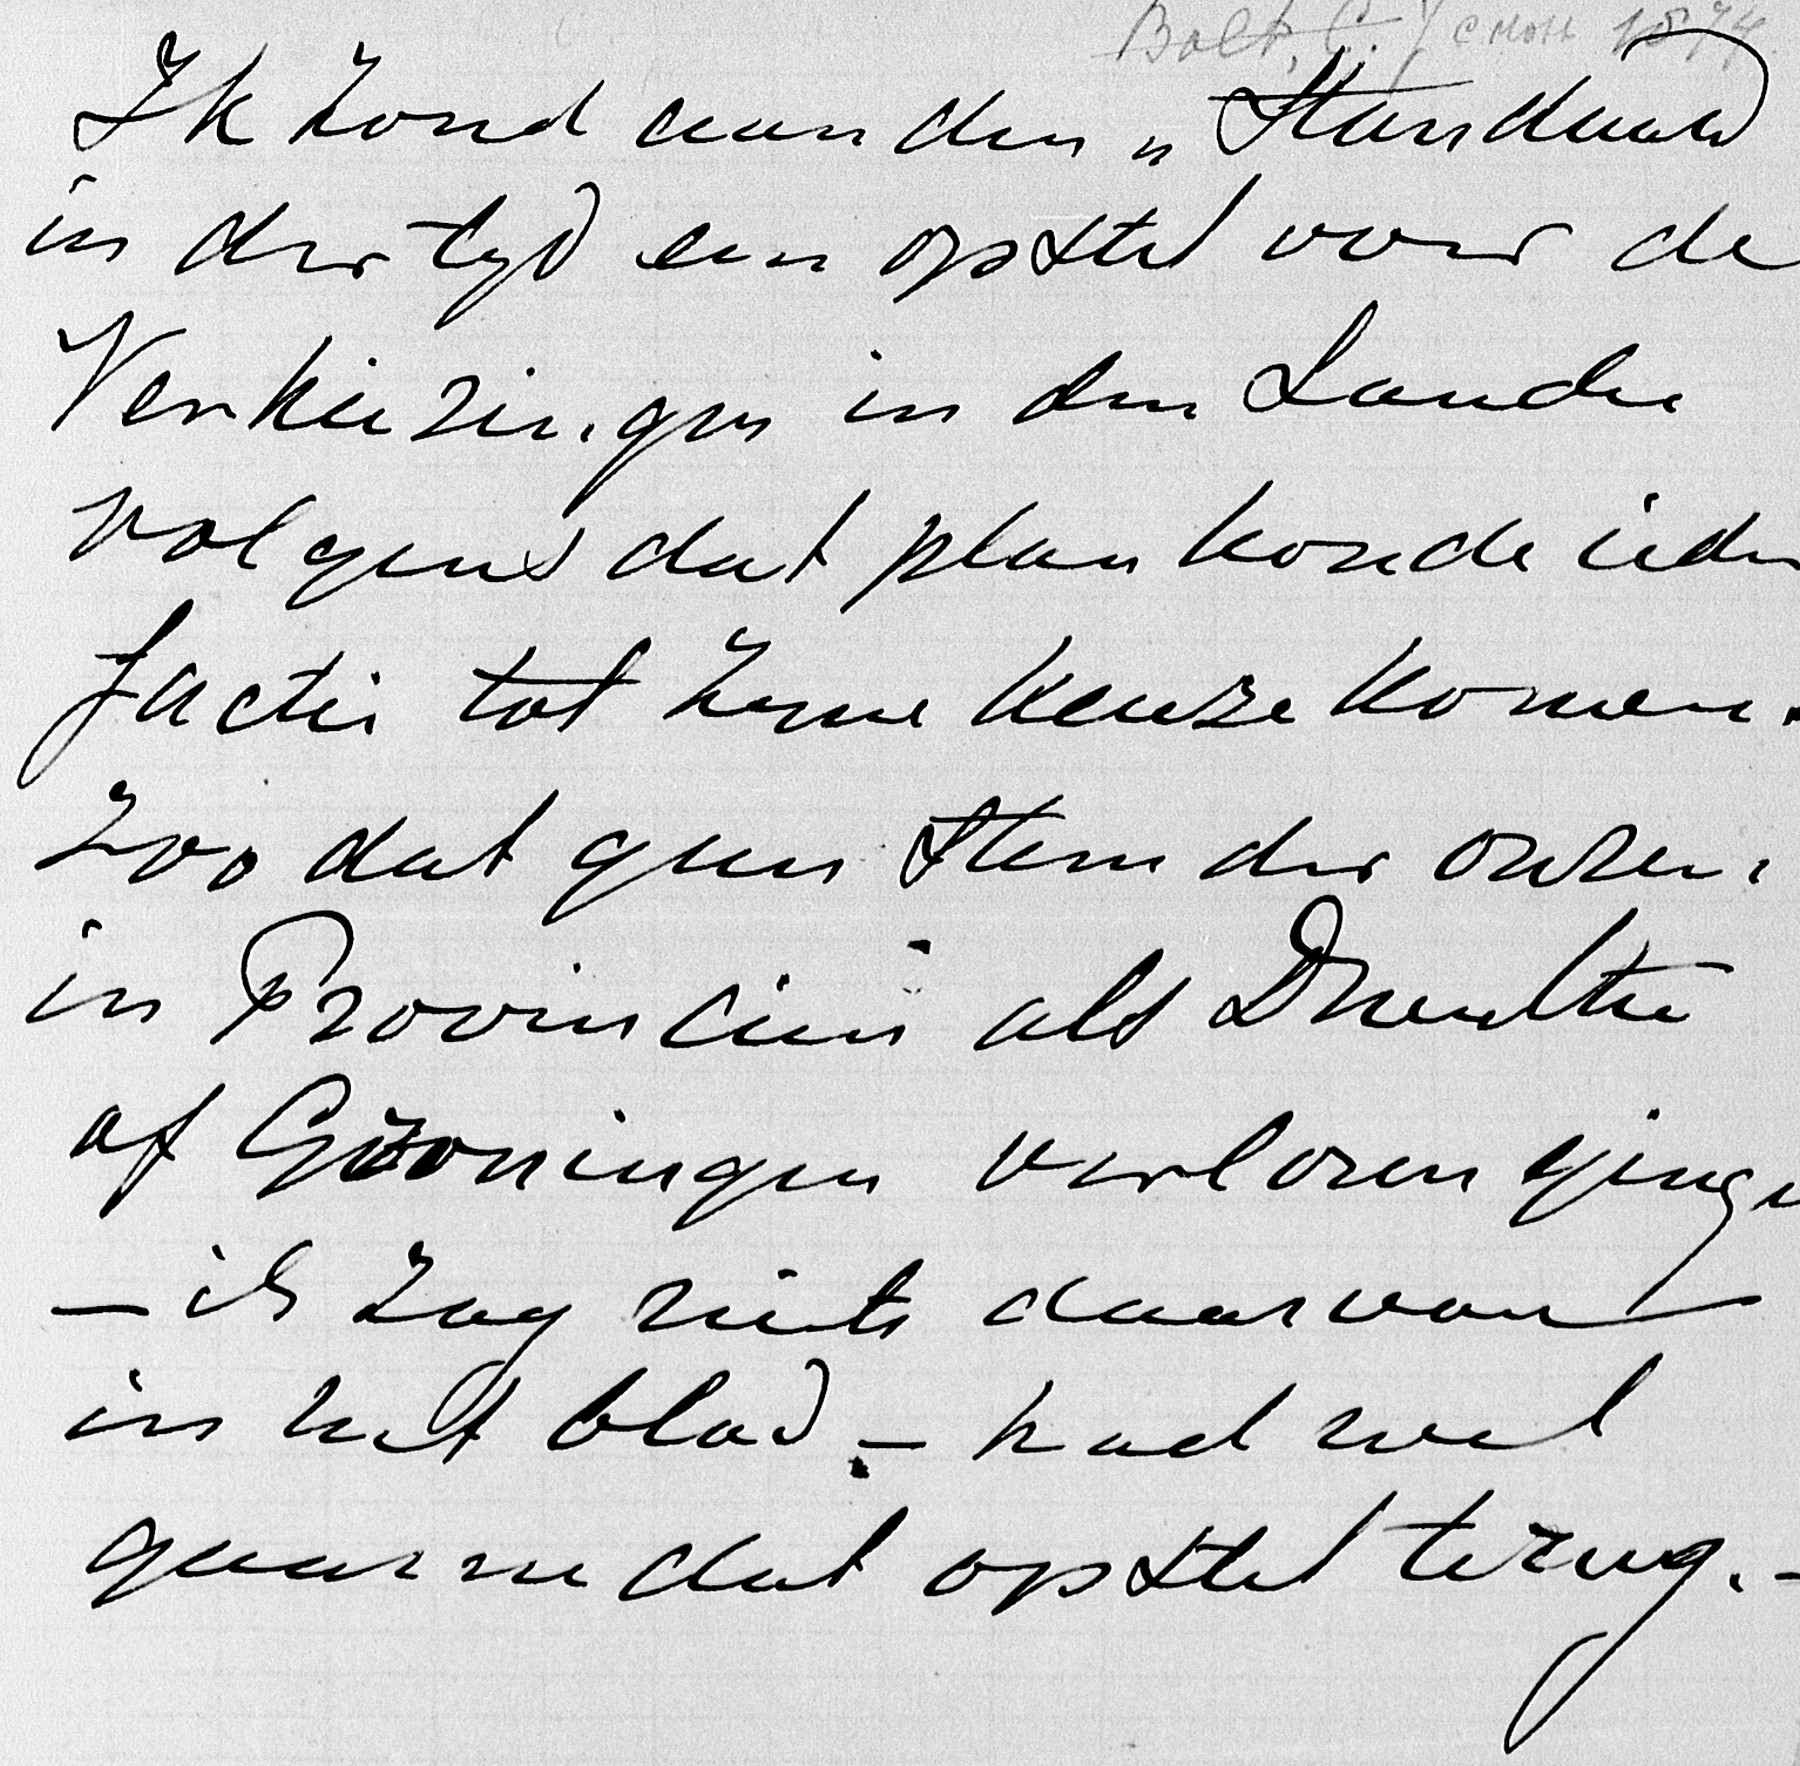 Bolt, C. 1874
Ik zond aan den „Standaard
in der tyd een opstel voor de
Verkiezingen in den Lande
volgens dat plan konde ieder
factie tot zyne keuze komen.
zoo dat geen stem der onzen
in Provincien als Drenthe
of Groningen verloren ginge
— ik zag niets daarvan —
in het blad. — had wel
gaarne dat opstel terug. —